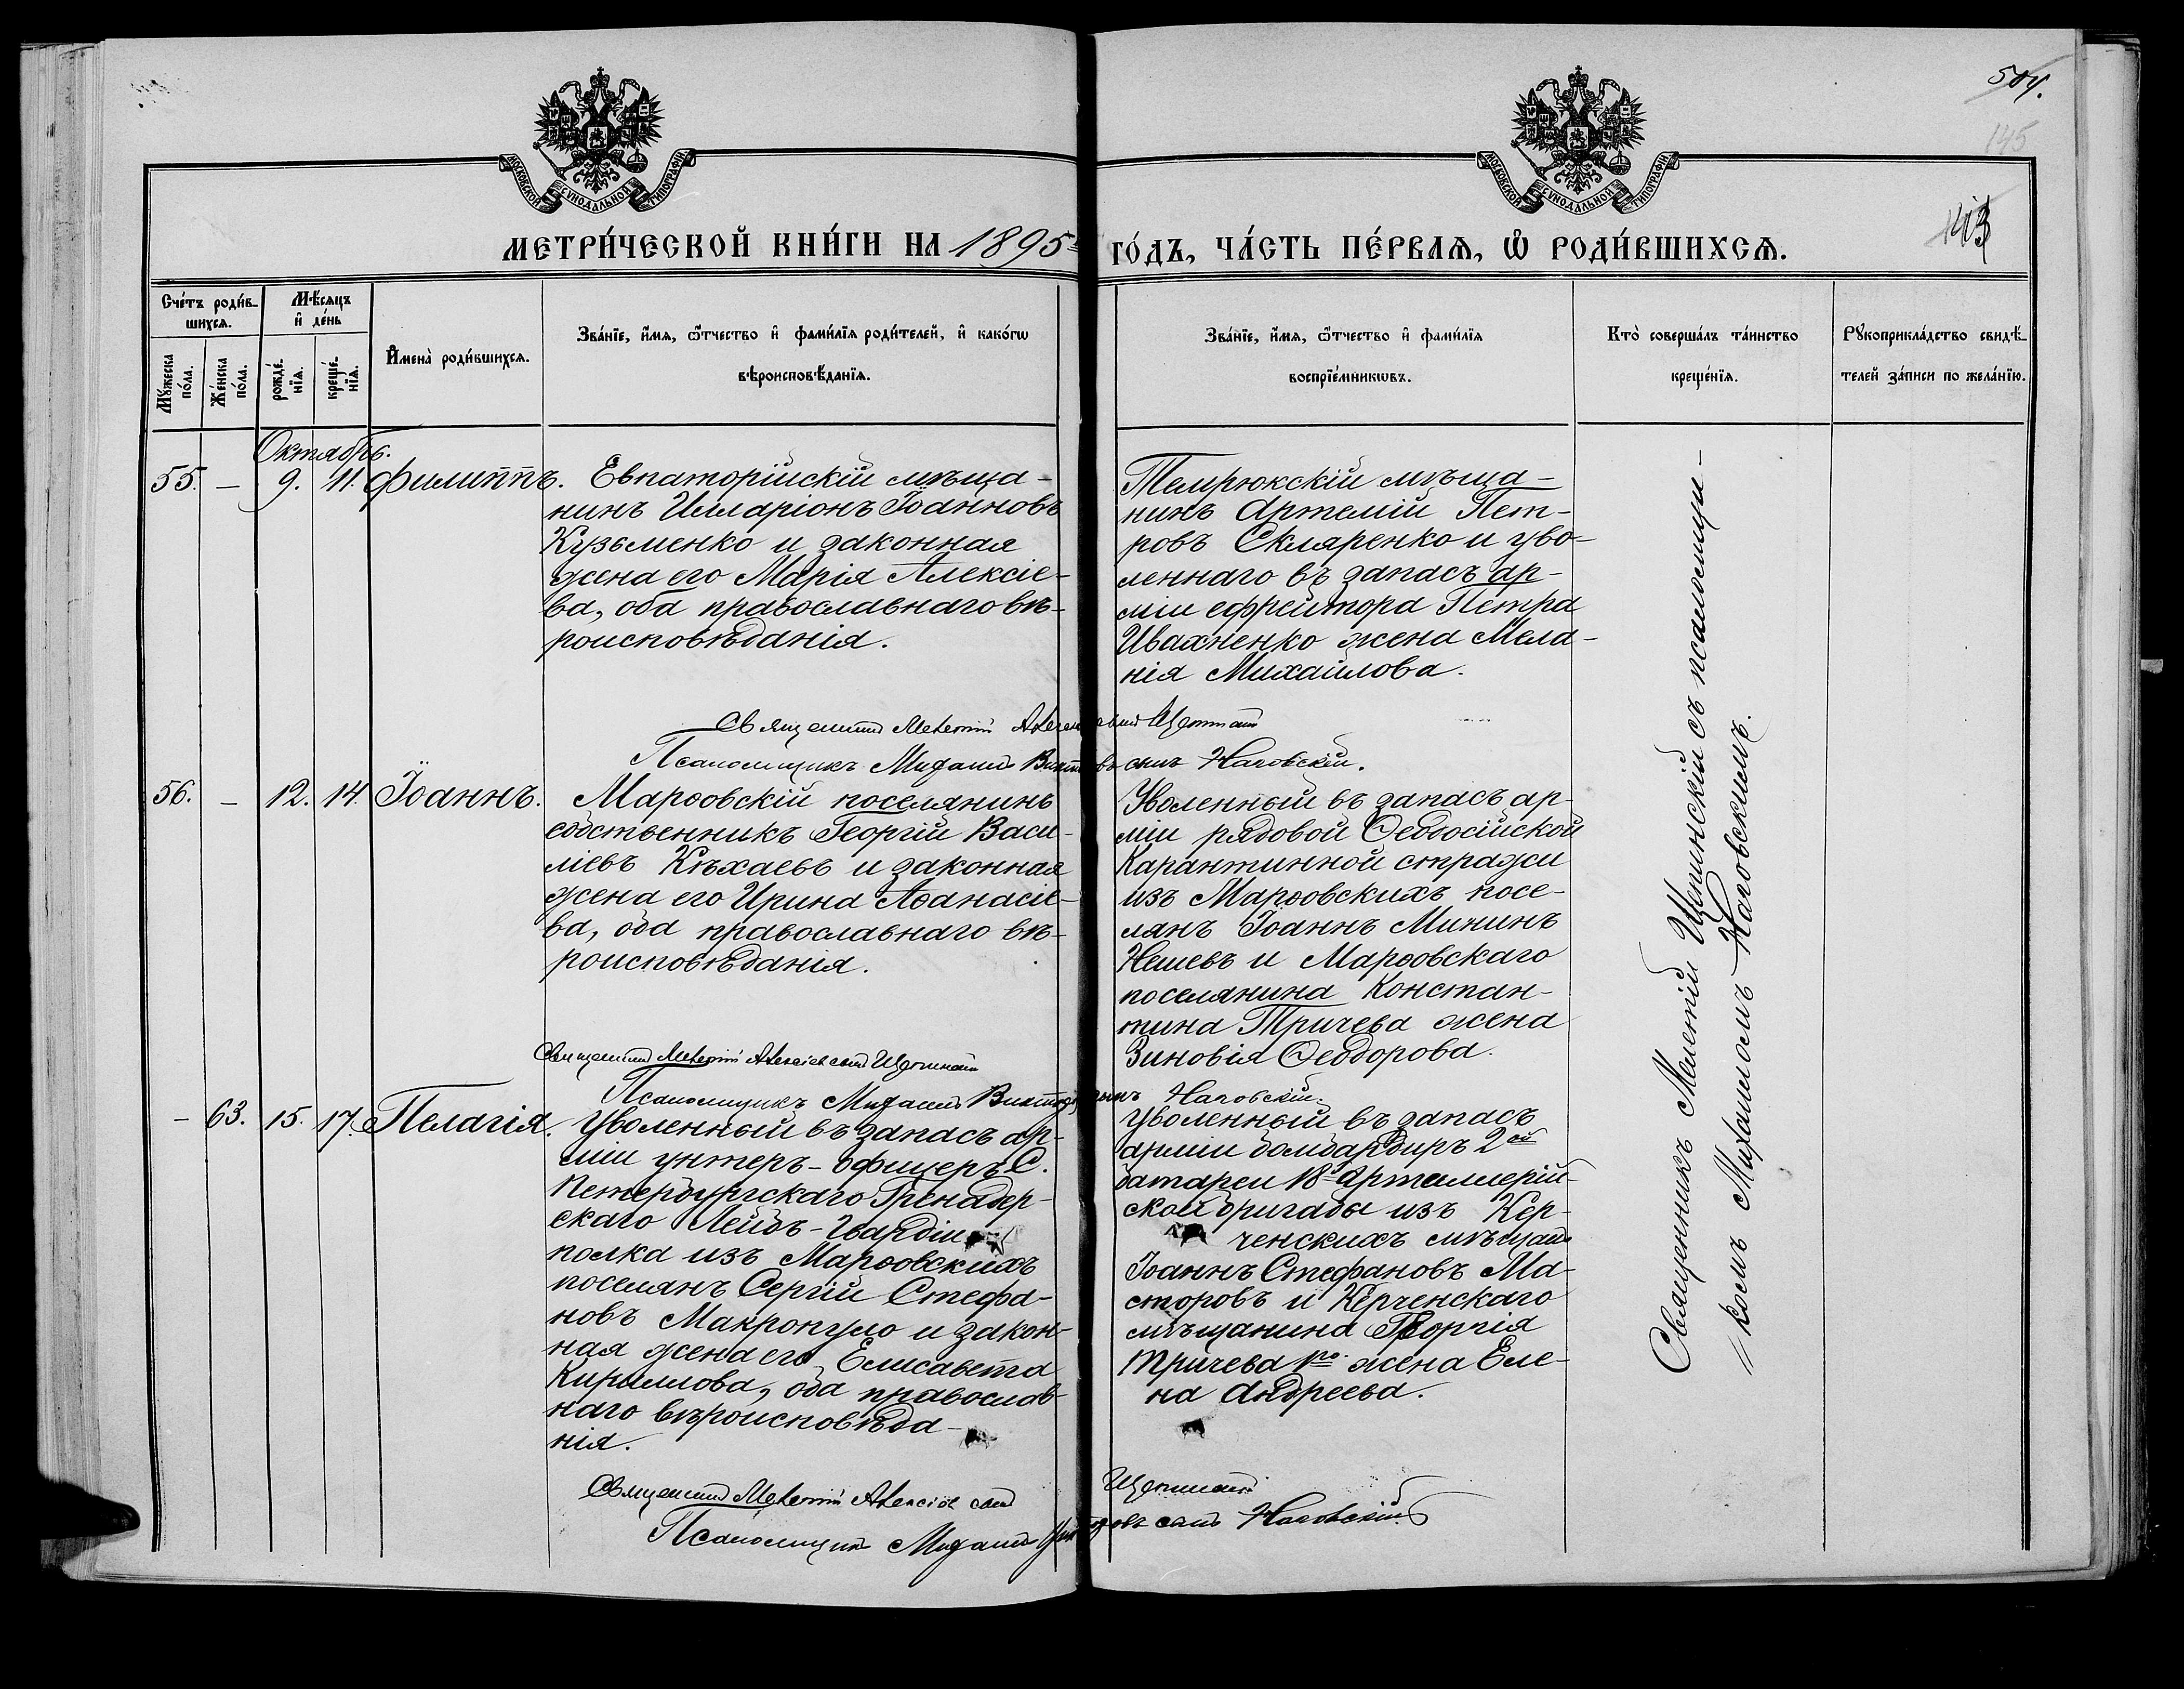 504.
145
143
МОСКОВСКОЙ СУНОДАЛЬНОЙ ТИПОГРАФІИ
МОСКОВСКОЙ СУНОДАЛЬНОЙ ТИПОГРАФІИ
МЕТРИ́ЧЕСКОЙ КНИ́ГИ НА 1895й
ГО́ДЪ, ЧА́СТЬ ПЕ́РВАѦ, Ѡ҆ РОДИ́ВШИХСѦ.
Сче́тъ роди́в-
шихсѧ.
Мꙋ́жеска
по́ла.
Же́нска
по́ла.
Мѣ́сѧцъ
и҆ де́нь
рожде́-
нїѧ.
креще́-
нїѧ.
И҆мена̀ роди́вшихсѧ.
Зва́нїе, и҆́мѧ, ѻ҆́тчество и҆ фами́лїѧ роди́телей, и҆ како́гѡ
вѣроисповѣ́данїѧ.
Зва́нїе, и҆́мѧ, ѻ҆́тчество и҆ фами́лїѧ
воспрїе́мникѡвъ.
Кто̀ соверша́лъ та́инство
креще́нїѧ.
Рꙋкоприкла́дство свидѣ́-
телей за́писи по жела́нїю.
Октябрь.
55. – 9. 11. Филиппъ.
Евпаторійскій мѣща-
нинъ Илларіонъ Іоанновъ
Кузьменко и законная
жена его Марія Алексіе-
ва, оба православнаго вѣ-
роисповѣданія.
Темрюкскій мѣща-
нинъ Артемій Пет-
ровъ Скляренко и уво-
леннаго въ запасъ ар-
міи ефрейтора Петра
Ивахненко жена Мела-
нія Михайлова.
Священникъ Мелетій Алексіевъ Щепинскій
Псаломщикъ Михаилъ Викторовъ сынъ Наговскій.
56. – 12. 14. Іоаннъ.
Марѳовскій поселянинъ
собственникъ Георгій Васи-
ліевъ Кѣхаевъ и законная
жена его Ирина Аѳанасіе-
ва, оба православнаго вѣ-
роисповѣданія.
Уволенный въ запасъ ар-
міи рядовой Ѳеодосійской
Карантинной стражи
изъ Марѳовскихъ посе-
лянъ Іоаннъ Мининъ
Нешевъ и Марѳовскаго
поселянина Констан-
тина Тричева жена
Зиновія Ѳеодорова.
Священникъ Мелетій Алексіевъ сынъ Щепинскій
Псаломщикъ Михаилъ Викторовъ сынъ Наговскій.
– 63. 15. 17. Пелагія.
Уволенный въ запасъ ар-
міи унтеръ-офицеръ С.
Петербургскаго Гренадер-
скаго Лейбъ-Гвардіи
полка изъ Марѳовскихъ
поселянъ Сергій Стефа-
новъ Макропуло и закон-
ная жена его Елисавета
Кириллова, оба православ-
наго вѣроисповѣда-
нія.
Уволенный въ запасъ
арміи бомбардиръ 2ой
батареи 18й Артиллерій-
ской бригады изъ Кер-
ченскихъ мѣщанъ
Іоаннъ Стефановъ Ма-
сторовъ и Керченскаго
мѣщанина Георгія
Тричева 1го жена Еле-
на Андреева.
Священникъ Мелетій Алексіевъ сынъ Щепинскій
Псаломщикъ Михаилъ Викторовъ сынъ Наговскій
Священникъ Мелетій Щепинскій съ псаломщи-
комъ Михаиломъ Наговскимъ.